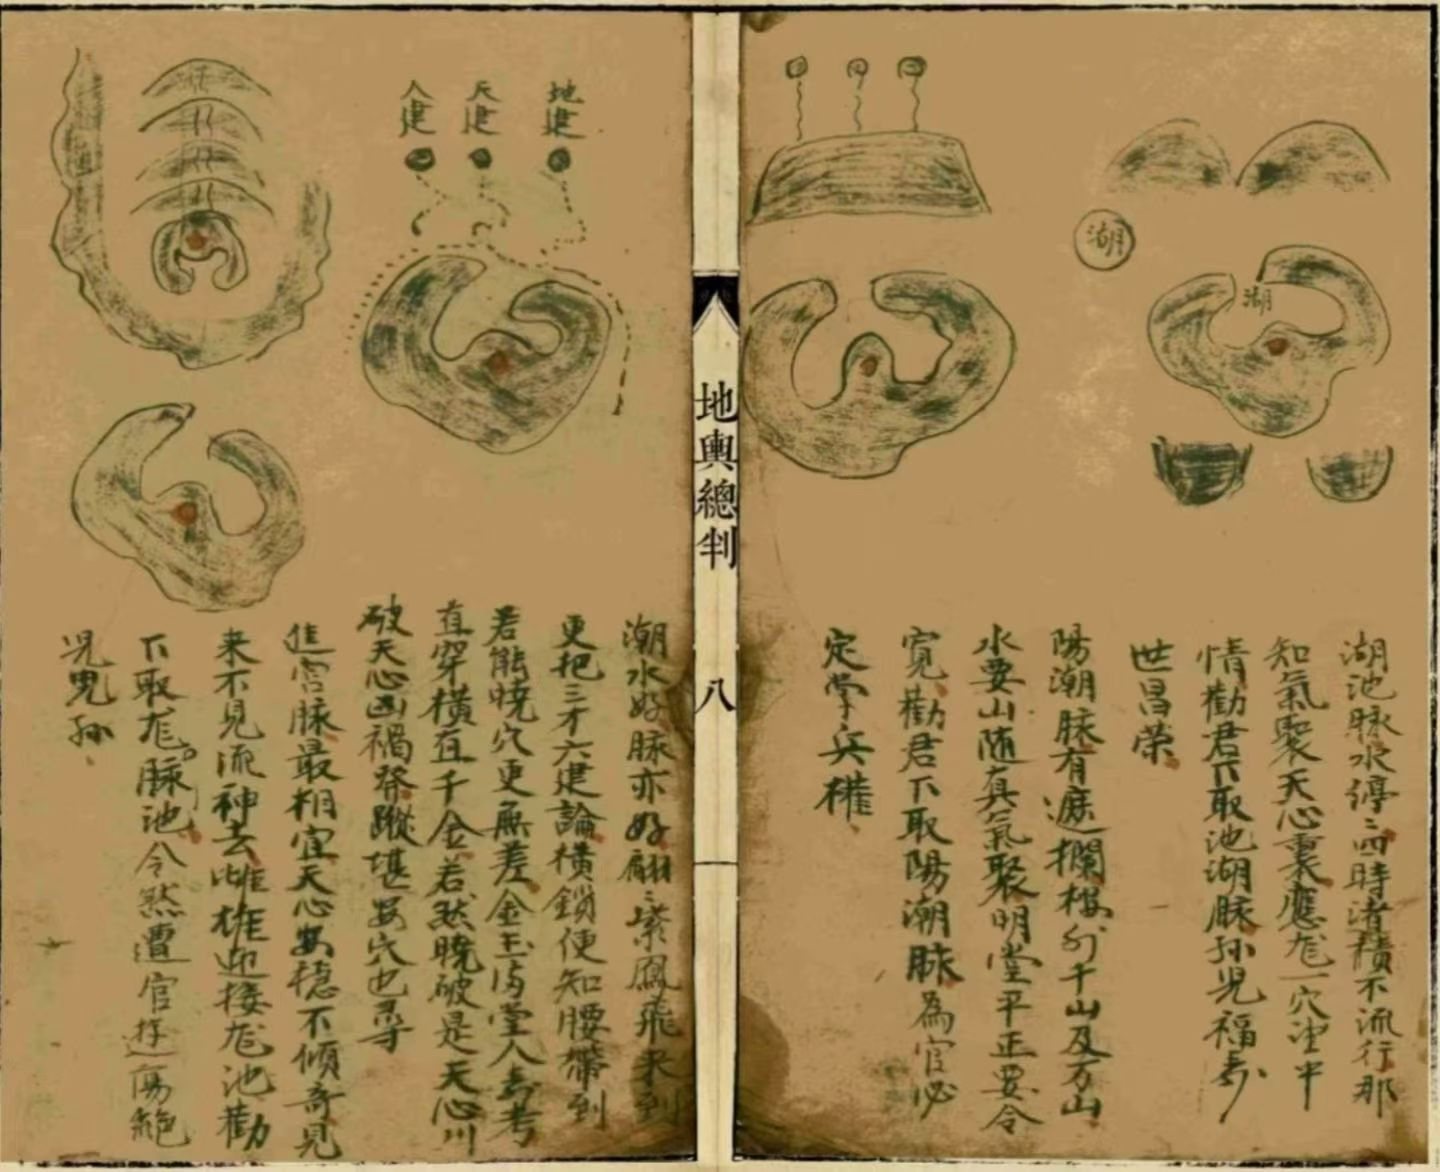 湖
湖
湖池脉水停〻四時渚積不流行那
知氣聚天心裏應龙一穴坐中
情勸君下取池湖脉孫児福壽
世昌荣
陽潮脉有遮攔樓外千山及万山
水要山随真氣聚明堂平正要令
寛勸君下取陽潮脉為官必
定掌兵權
地輿總判
八
地建
天建
人建
潮水好脉亦好翩〻紫鳳飛来到
更把三才六建論横鎖便知腰帶到
若能曉穴更無差金玉满堂人壽考
直穿横直千金若然曉破是天心川
破天心凶禍 蹤堪安穴也 尋
進宫脉最相宜天心安穏不傾奇見
来不見流神去雌雄迎接龙池勸
下取龙脉池令然遭官 傷絶
児 孫